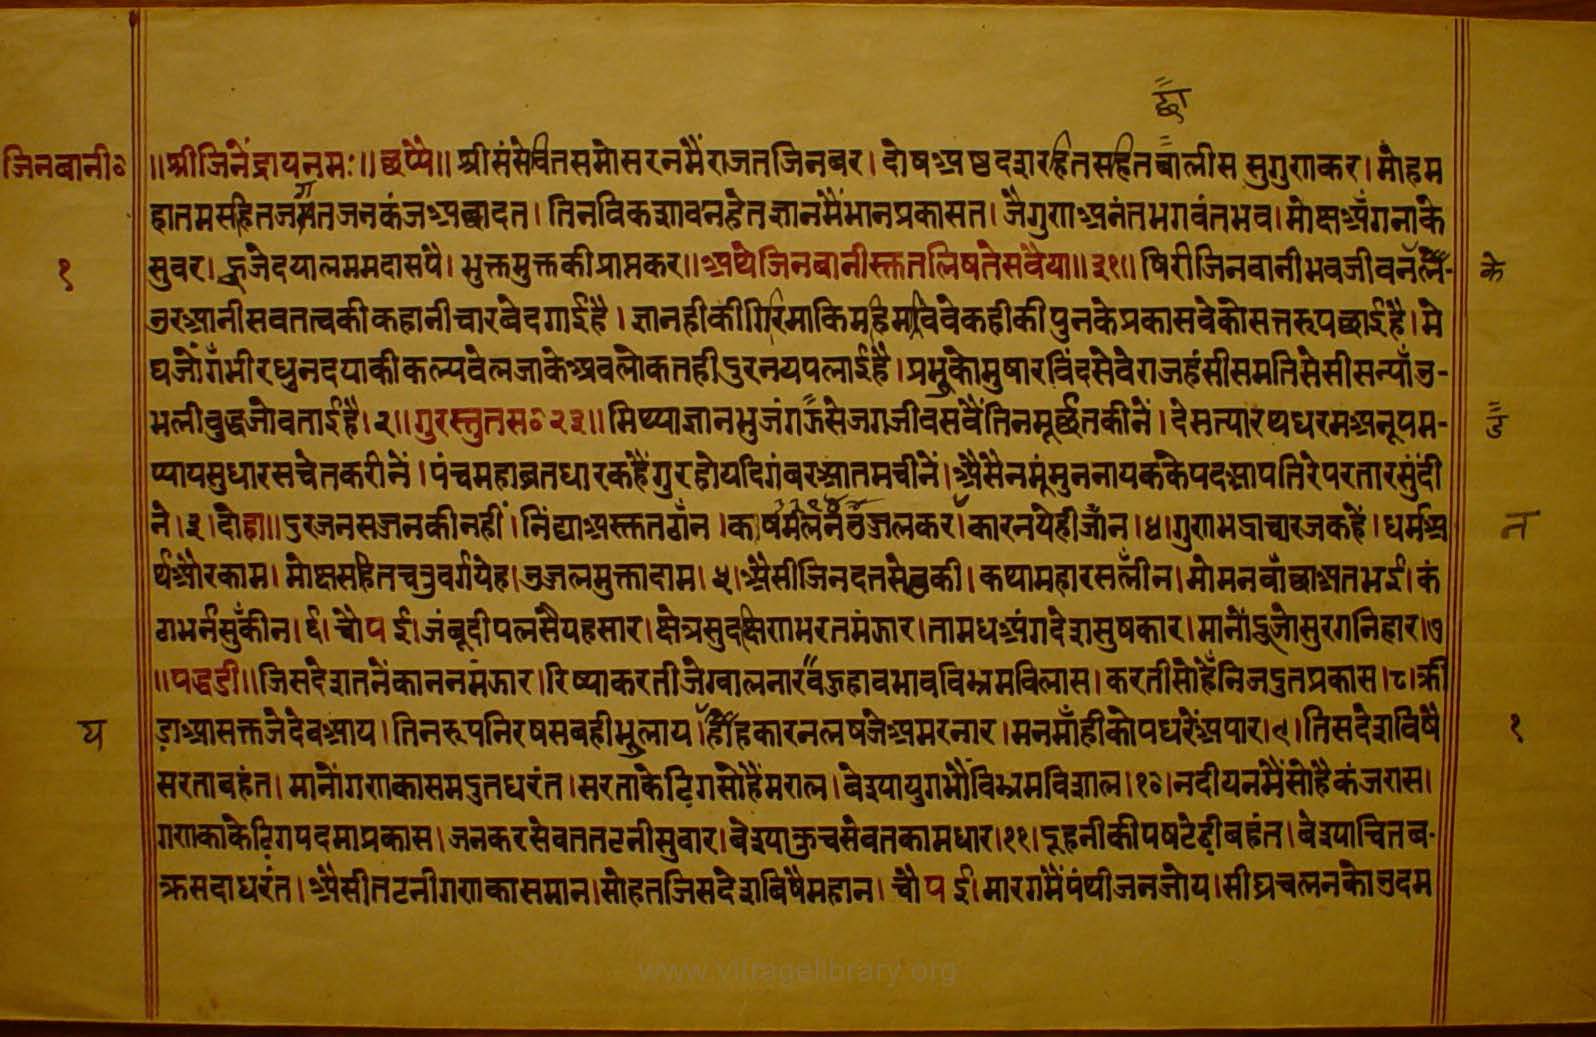 छा
जिनबानी॰
॥श्रीजिनेंद्रायनमः॥छप्पै॥श्रीसंसेवितसमोसरनमैंराजतजिनबर।दोषअष्टदशरहितसहितबालीससुगुराकर।मोहम
हातमसहितजगतजनकंजअछादत।तिनविकशावनहेतज्ञानमैंभानप्रकासत।जैगुणअनंतभगवंतभव।मोक्षअँगनाके
१ सुवर।हूजेदयालममदासपै।भुक्तमुक्तकीप्राप्तकर॥अथेजिनबानीस्क्ततलिषतेसवैया॥३१॥षिरीजिनवानीभवजीवनलै- के
उरआनीसवतत्वकीकहानीचारबेदगाईहै।ज्ञानहीकीगिरिमाकिमहिमाविवेकहीकीपुनकेप्रकासवेकोसत्तरूपछाईहै।मे
घजोंगँभीरधुनदयाकीकल्पवेलजाकेअवलोकतहीदुरनयपलाईहै।प्रभुकोमुषारविंदसेवेराजहंसीसमतिसेसीसन्याँउ-
भलीबुद्धजोवताईहै।२॥गुरस्तुतस॰२३॥मिथ्याज्ञानभुजंगडसेजगजीवसवैंतिनमूर्छतकीनें।देसत्यारथधरमअनूपम- ज
प्यायसुधारसचेतकरीनें।पंचमहाब्रतधारकहैंगुरहोयदिगंबरआतमचीनें।अैसैनमूंमुननायककेपदआपतिरेपरतारसुंदी
ने।३।दोहा॥दुरजनसजनकीनहीं।निंद्याअस्क्ततठाँन।काषमेलनउजलकर।कारनयेहीजाँन।४।गुराभद्राचारजकहें।धर्मअ न
र्थऔरकाम।मोक्षसहितचतुवर्गयेह।उजलमुक्तादाम।५।अैसीजिनदतसेठकी।कथामहारसलीन।मोमनबाँछाअतभई।कं
ठाभर्नसुँकीन।६।चौपई।जंबूदीपलसैयहसार।क्षेत्रसुदक्षिणभरतमंझार।तामधअंगदेशसुषकार।मानोंदुजोसुरगनिहार।७
॥पद्धडी॥जिसदेशतनेंकाननमंझार।रिष्याकरतीजेग्वालनारवहुहावभावविभ्रमविलास।करतीसोहैंनिजदुतप्रकास।८।क्री
य ड़ाआसक्तजेदेवआय।तिनरूपनिरषसबहीभुलाय।हीहकारनलषजेअमरनार।मनमाँहीकोपधरेंअपार।९।तिसदेशविषै १
सरताबहंत।मानोंगराकासमदुतधरंत।सरताकेढिगसोहैंमराल।बेश्यायुगभौविभ्रमविशाल।१०।नदीयनमैंसोहैकंजरास।
गराकाकेढिगपदमाप्रकास।जनकरसेवततटनीसुवार।बेश्याकुचसेवतकामधार।११।दूहनीकीपषटेढीबहंत।बेश्याचितब-
क्रसदाधरंत।अैसीतटनीगराकासमान।सोहतजिसदेशबिषैमहान।चौपई।मारगमैंपंथीजनजोय।सीघ्रचलनकोउदम
www.vitragelibrary.org